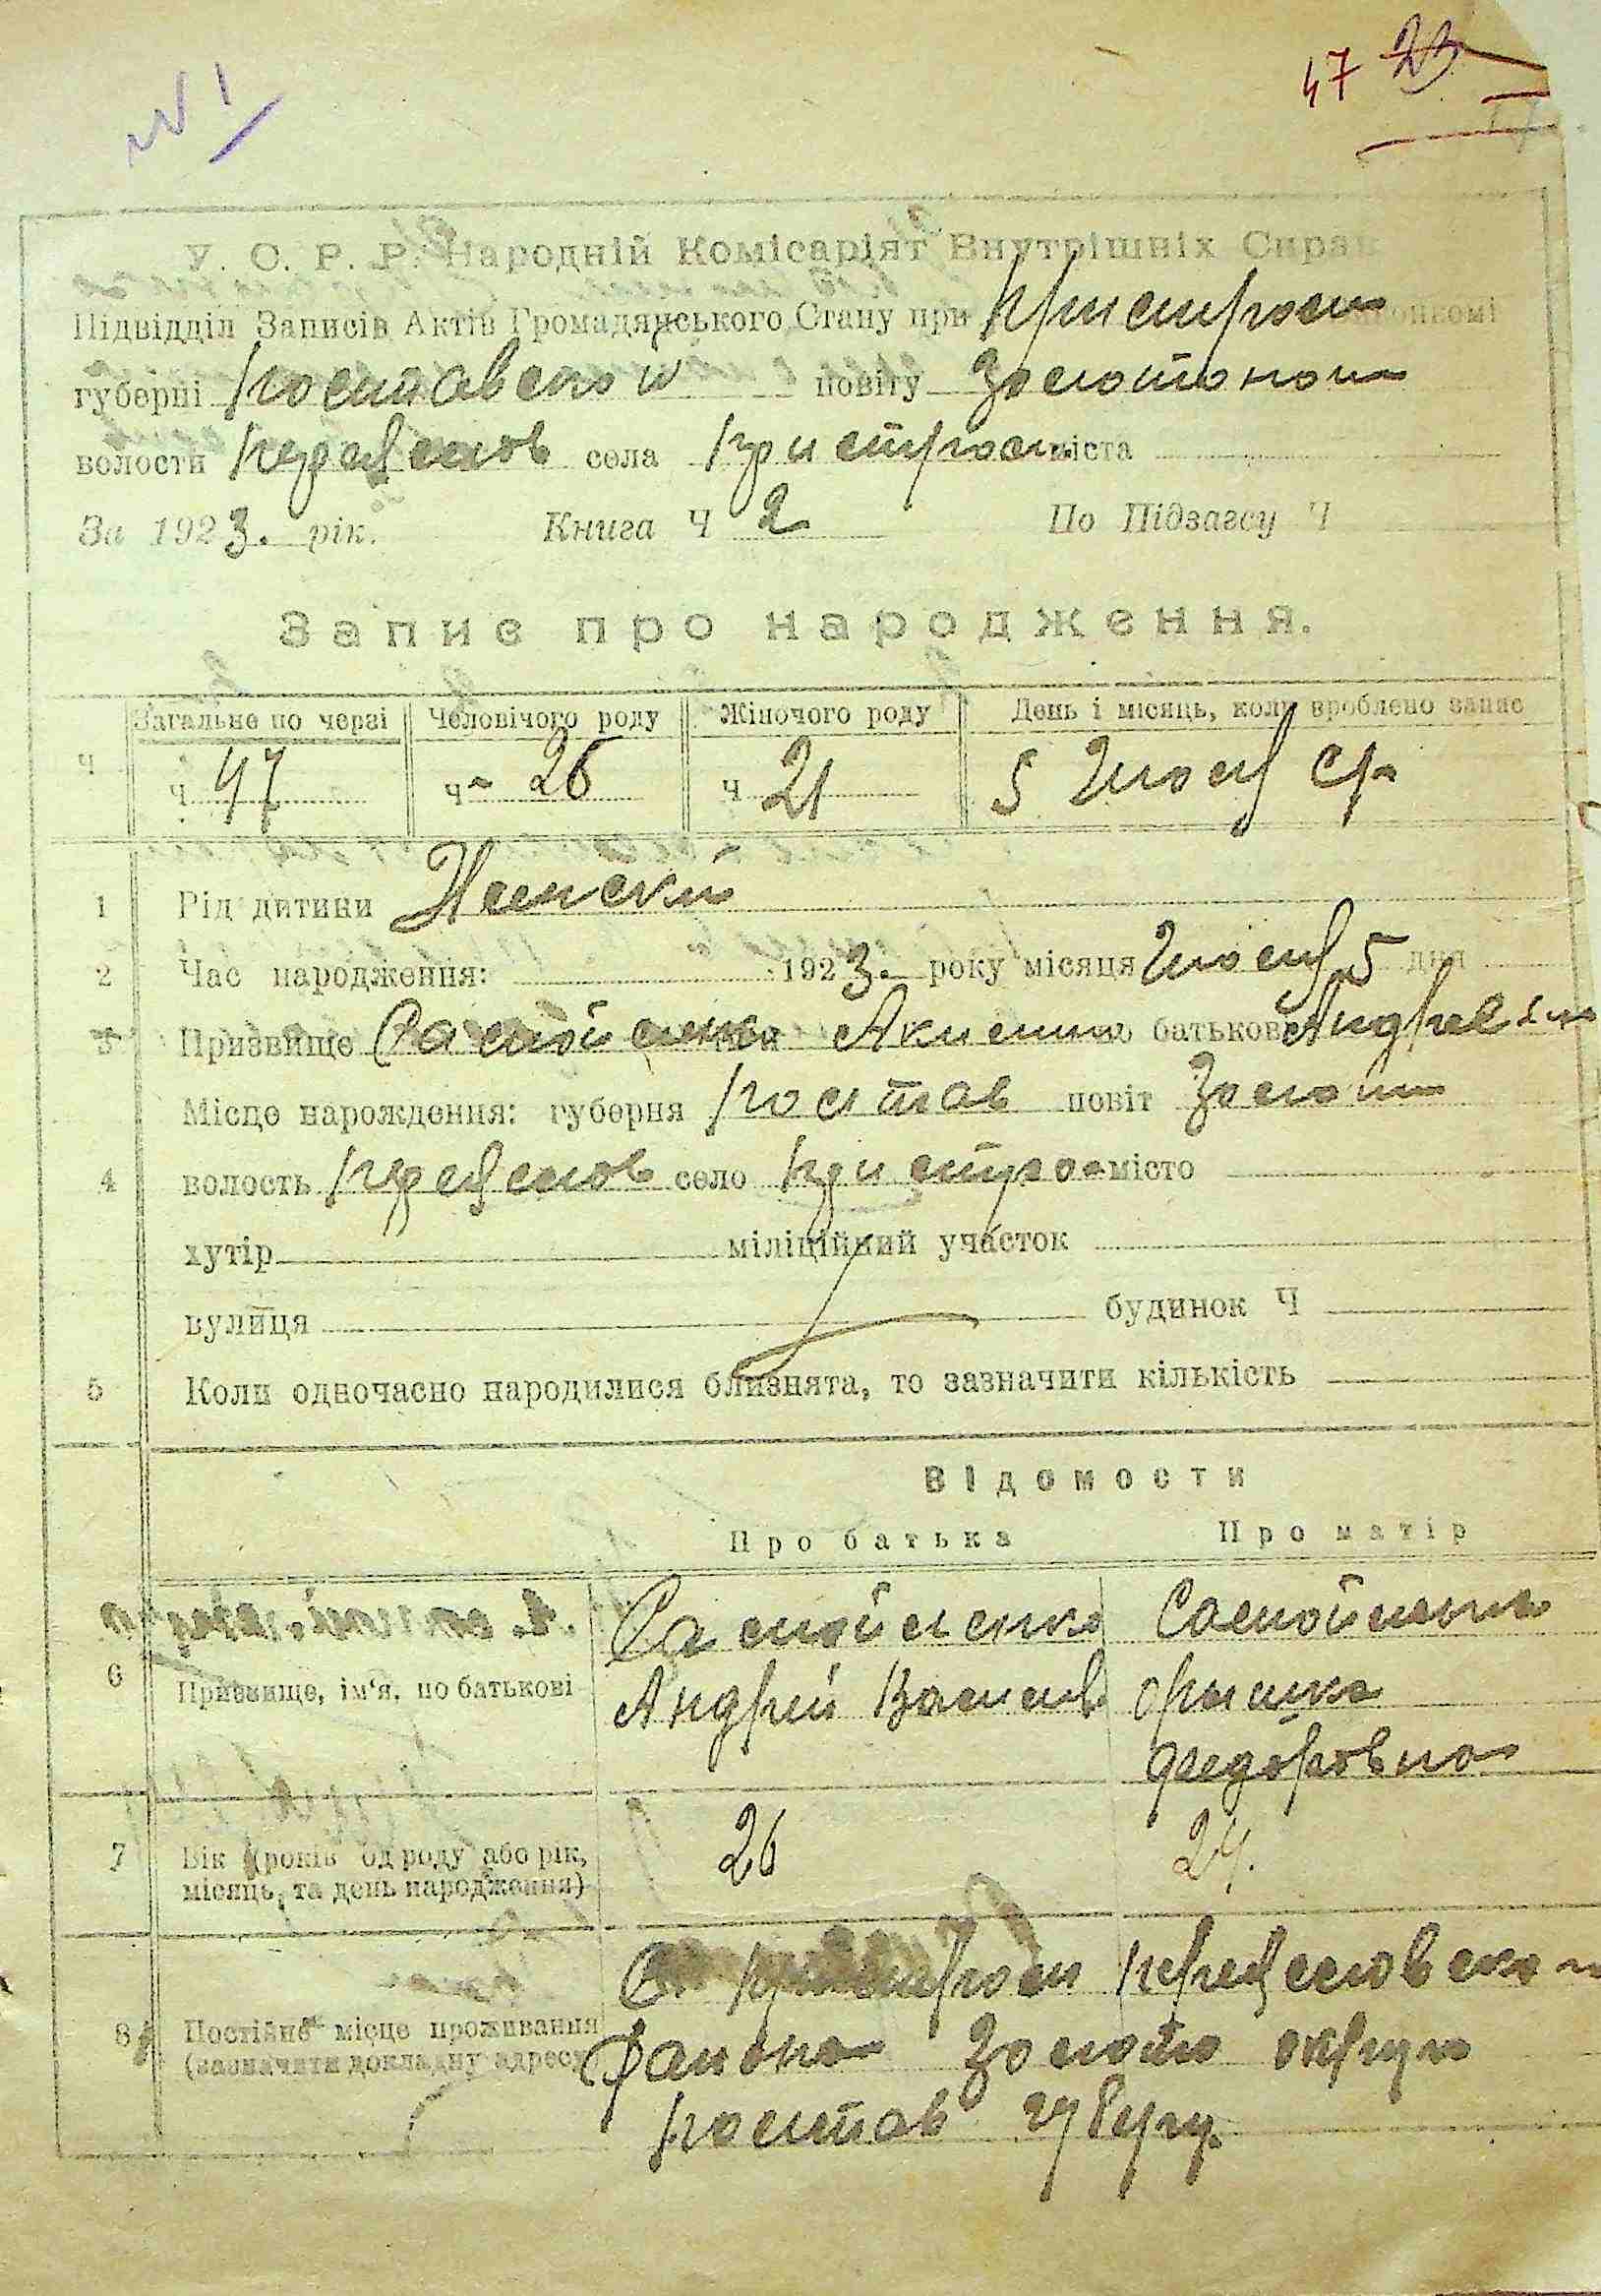 № 1
47 23
У. С. Р. Р. Народній Комісаріят Внутрішніх Справ
Підвідділ Записів Актів Громадянського Стану при
губерні Полтавской повіту Золотонош
волости села міста
За 1923. рік. Книга Ч 2 По Підзагсу Ч
Запис про народження.
Загальне по черзі Человічого роду Жіночого роду День і місяць, коли зроблено запис
Ч Ч 47 Ч 26 Ч 21 5 Июля
1 Рід дитини Женский
2 Час народження: 1923. року місяця Июля 5 дня
3 Призвище Самойленко Акилина батькові Андреевна
Місце нарождення: губерня Полтав повіт Золотон
4 волость село місто
хутір міліційний участок
вулиця будинок Ч
5 Коли одночасно народилися близнята, то зазначити кількість
Відомости
Про батька Про матір
Самойленко Самойленко
6 Призвище, ім'я, по батькові Андрей Васильев
Федоровна
7 Вік (років од роду або рік, 26
місяць, та день народження)
8 Постійне місце проживання
(зазначити докладну адресу) района Золотон округи
Полтав губерн.